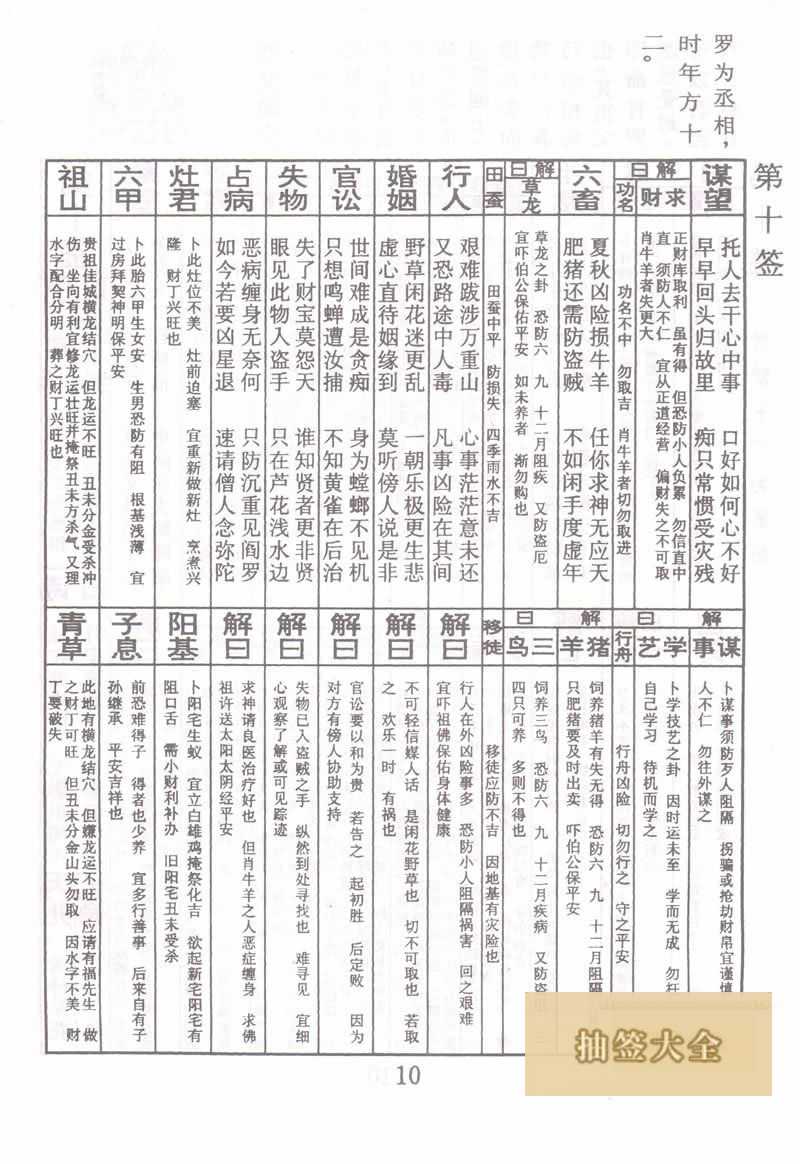 罗为丞相，
时年方十
二。
第十签
谋望
托人去干心中事 口好如何心不好
早早回头归故里 痴只常惯受灾残
解曰
求财
正财库取利 虽有得 但恐防小人负累 勿信直中
直 须防人不仁 宜从正道经营 偏财失之不可取
肖牛羊者失更大
功名
功名不中 勿取吉 肖牛羊者切勿取进
六畜
夏秋凶险损牛羊 任你求神无应天
肥猪还需防盗贼 不如闲手度虚年
解曰
草龙
草龙之卦 恐防六 九 十二月阻疾 又防盗厄
宜吓伯公保佑平安 如未养者 渐勿购也
田蚕
田蚕中平 防损失 四季雨水不吉
行人
艰难跋涉万重山 心事茫茫意未还
又恐路途中人毒 凡事凶险在其间
婚姻
野草闲花迷更乱 一朝乐极更生悲
虚心直待姻缘到 莫听傍人说是非
官讼
世间难成是贪痴 身为螳螂不见机
只想鸣蝉遭汝捕 不知黄雀在后治
失物
失了财宝莫怨天 谁知贤者更非贤
眼见此物入盗手 只在芦花浅水边
占病
恶病缠身无奈何 只防沉重见阎罗
如今若要凶星退 速请僧人念弥陀
灶君
卜此灶位不美 灶前迫塞 宜重新做新灶 烹煮兴
隆 财丁兴旺也
六甲
卜此胎六甲生女安 生男恐防有阻 根基浅薄 宜
过房拜契神明保平安
祖山
贵祖佳城横龙结穴 但龙运不旺 丑未分金受杀冲
伤 坐向有利宜修龙运壮旺并掩祭丑未方杀气 又理
水字配合分明 葬之财丁兴旺也
解曰
谋事
卜谋事须防歹人阻隔 拐骗或抢劫财帛宜谨慎
人不仁 勿往外谋之
学艺
卜学技艺之卦 因时运未至 学而无成 勿枉
自己学习 待机而学之
行舟
行舟凶险 切勿行之 守之平安
解曰
猪羊
饲养猪羊有失无得 恐防六 九 十二月阻隔
只肥猪要及时出卖 吓伯公保平安
三鸟
饲养三鸟 恐防六 九 十二月疾病 又防盗
四只可养 多则不得也
移徒
移徒应防不吉 因地基有灾险也
解曰
行人在外凶险事多 恐防小人阻隔祸害 回之艰难
宜吓祖佛保佑身体健康
解曰
不可轻信媒人话 是闲花野草也 切不可取也 若取
之 欢乐一时 有祸也
解曰
官讼要以和为贵 若告之 起初胜 后定败 因为
对方有傍人协助支持
解曰
失物已入盗贼之手 纵然到处寻找也 难寻见 宜细
心观察了解或可见踪迹
解曰
求神请良医治疗好也 但肖牛羊之人恶症缠身 求佛
祖许送太阳太阴经平安
阳基
卜阳宅生蚁 宜立白雄鸡掩祭化吉 欲起新宅阳宅有
阻口舌 需小财利补办 旧阳宅丑未受杀
子息
前恐难得子 得者也少养 宜多行善事 后来自有子
孙继承 平安吉祥也
青草
此地有横龙结穴 但嫌龙运不旺 应请有福先生 做
之财丁可旺 但丑未分金山头勿取 因水字不美 财
丁要破失
10
抽签大全